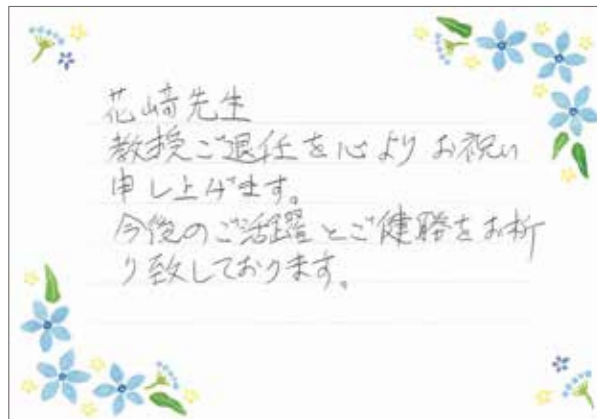 花﨑先生
教授ご退任を心よりお祝い
申し上げます。
今後のご活躍とご健勝をお祈
り致しております。